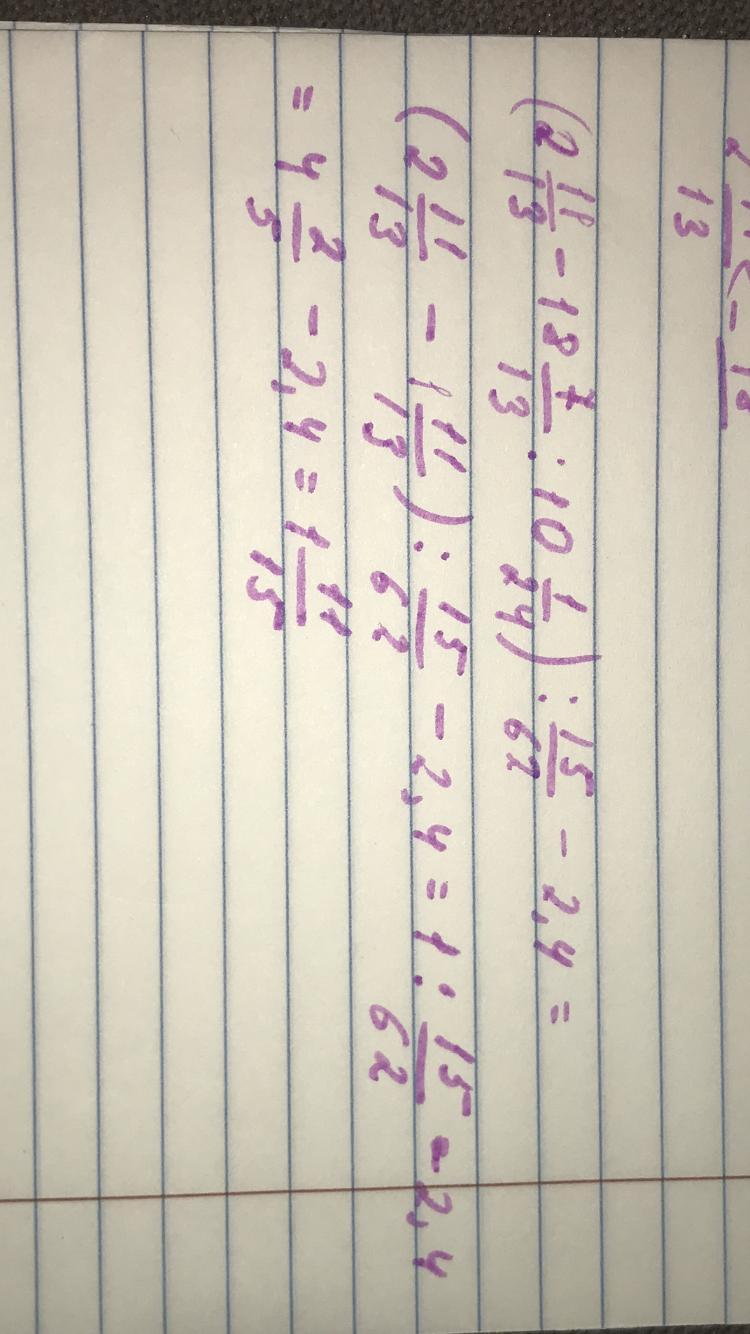 (2 11/13 - 18 7/13 : 10 1/24) : 15/62 - 2,4 =
(2 11/13 - 1 11/13) : 15/62 - 2,4 = 1 : 15/62 - 2,4
= 4 2/5 - 2,4 = 1 11/15